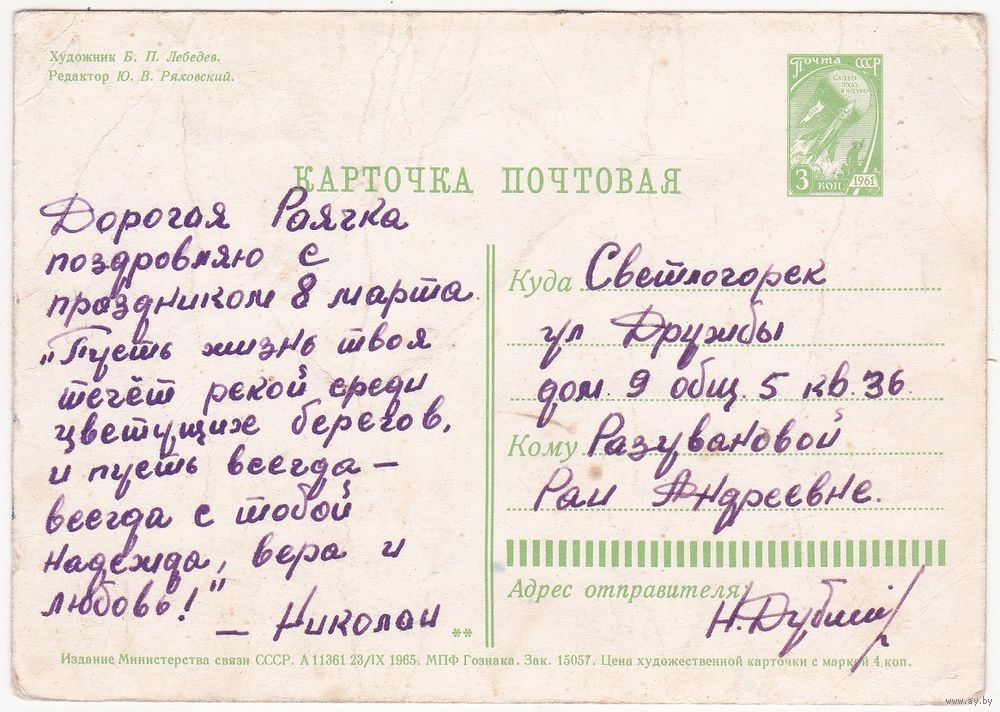 Художник Б. П. Лебедев.
Редактор Ю. В. Ряховский.
Почта СССР
Слава
труду
и науке
3 коп
1961
КАРТОЧКА ПОЧТОВАЯ
Дорогая Раячка
поздровляю с
праздником 8 марта.
„Пусть жизнь твоя
течёт рекой среди
цветущих берегов,
и пусть всегда —
всегда с тобой
надежда, вера и
любовь!"
— Николай
Куда Светлогорск
ул Дружбы
дом. 9 общ. 5 кв. 36.
Кому Разувановой
Раи Андреевне.
Адрес отправителя:
Н.
**
Издание Министерства связи СССР. А 11361 23/IX 1965. МПФ Гознака. Зак. 15057. Цена художественной карточки с маркой 4 коп.
www.ay.by